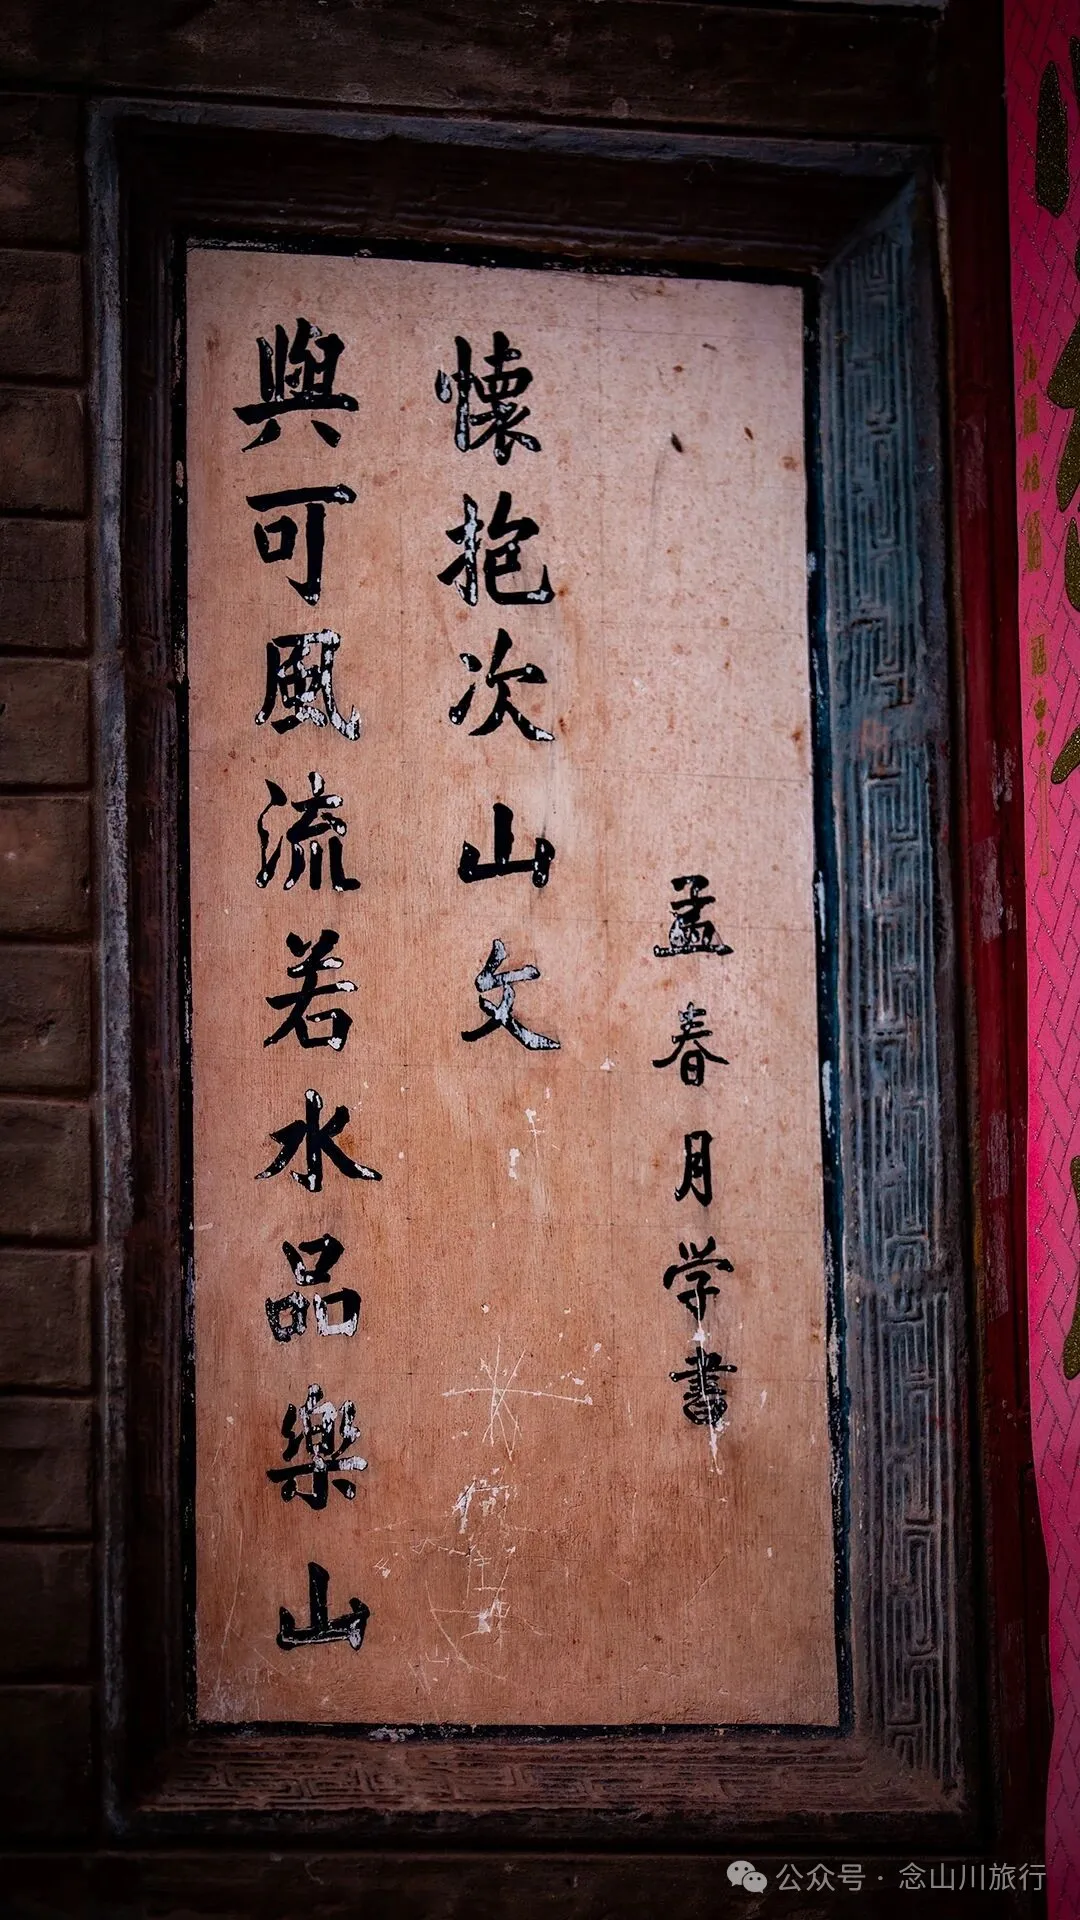 與可風流若水品樂山
懷抱次山文
孟春月学書
公众号 · 念山川旅行